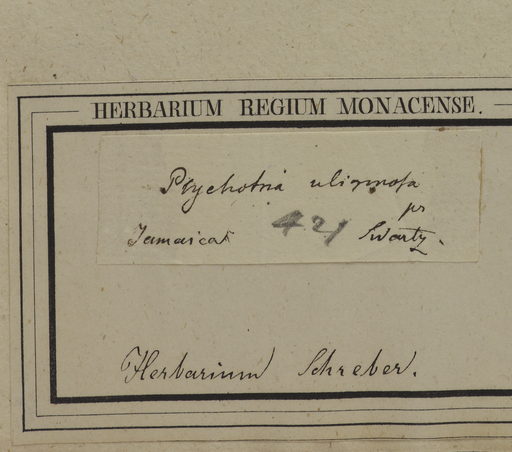 HERBARIUM REGIUM MONACENSE.
Psychotria uliginosa
pr
Jamaica 421 Swartz.
Herbarium Schreber.